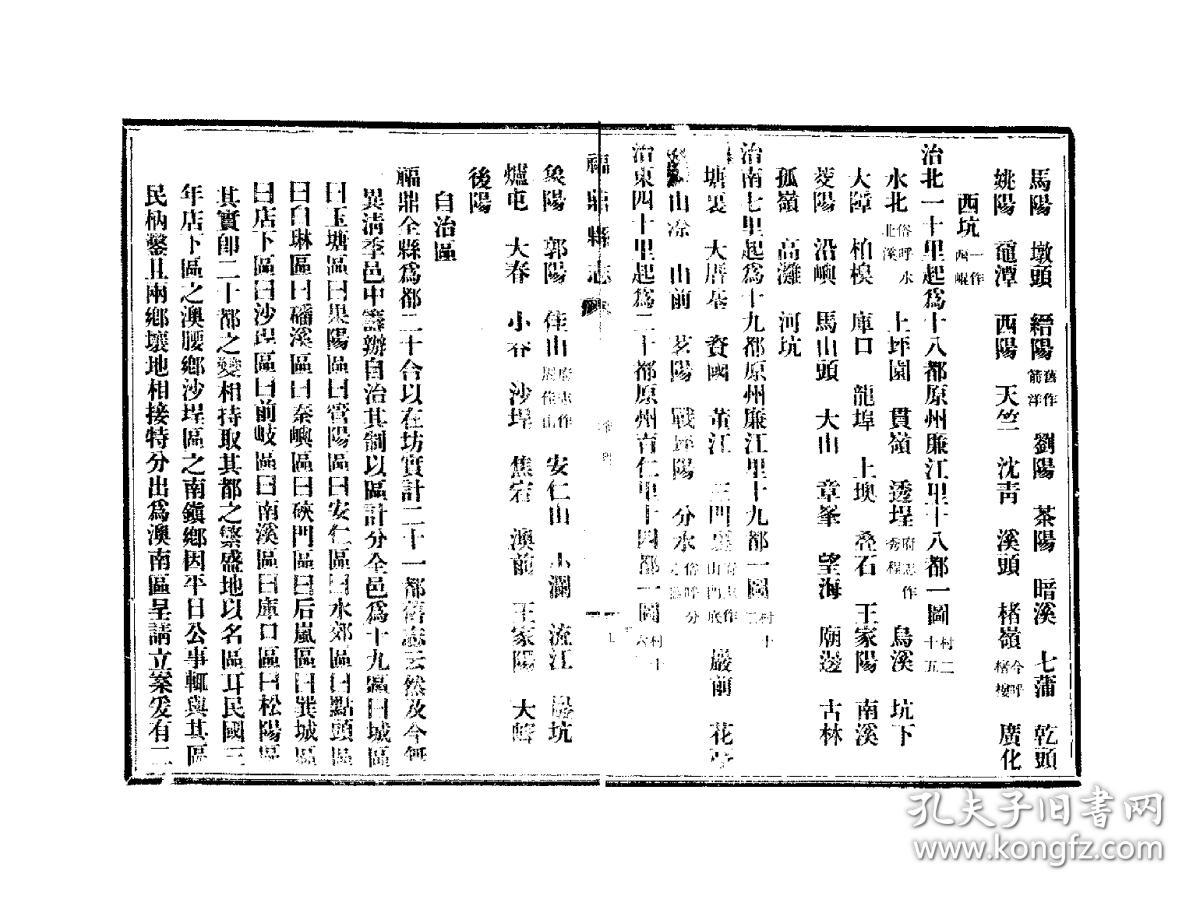 馬陽 墩頭 縉陽舊作箭洋 劉陽 茶陽 暗溪 七蒲 乾頭
姚陽 黿潭 西陽 天竺 沈青 溪頭 楮嶺今呼楮樓 廣化
西坑一作西崐
治北一十里起爲十八都原州廉江里十八都一圖村二十五
水北俗呼水北溪 上坪園 貫嶺 透埕府志作秀程 烏溪 坑下
大障 柏梘 庫口 龍埠 上堧 叠石 王家陽 南溪
菱陽 沿嶼 馬山頭 大山 章峯 望海 廟邊 古林
孤嶺 高灘 河坑
治南七里起爲十九都原州廉江里十九都一圖村十二
塘裏 大厝基 資國 董江 三門裏府志作山門底 嚴前 花亭
山前 茗陽 戰坪陽 分水俗呼分
治東四十里起爲二十都原州育仁里十四都一圖村十六
福鼎縣志
象陽 郭陽 佳山府志作展作山 安仁山 小瀾 流江 坑
爐屯 大春 小春 沙埕 焦宕 澳前 王家陽 大
後陽
自治區
福鼎全縣爲都二十合以在坊實計二十一都舊志云然及今無
異清季邑中籌辦自治其制以區計分全邑爲十九區曰城區
曰玉塘區曰果陽區曰管陽區曰安仁區曰水郊區曰點頭區
曰白琳區曰磻溪區曰秦嶼區曰硤門區曰后嵐區曰巽城區
曰店下區曰沙埕區曰前岐區曰南溪區曰庫口區曰松陽區
其實卽二十都之變相特取其都之繁盛地以名區耳民國三
年店下區之澳腰鄉沙埕區之南鎮鄉因平日公事輒與其區
民枘鑿且兩鄉壤地相接特分出爲澳南區呈請立案爰有二
孔夫子旧书网
www.kongfz.com